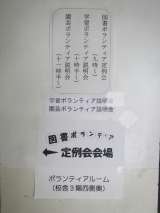 図書ボランティア定例会
（九時〜）
学習ボランティア説明会
（十時半〜）
園芸ボランティア説明会
（十一時半〜）
学習ボランティア説明会
園芸ボランティア説明会
図書ボランティア
定例会会場
ボランティアルーム
（校舎3階西側奥）